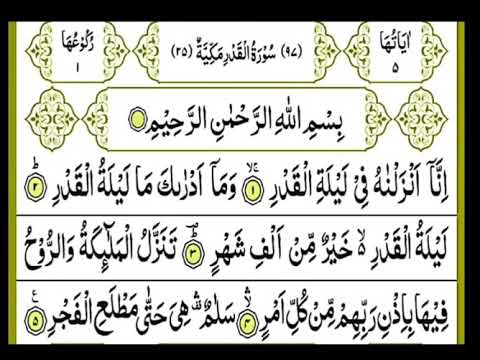 اٰیَاتُهَا ٥ (٩٧) سُوْرَةُ الْقَدْرِ مَكِّيَّةٌ (٢٥) رُكُوْعُهَا ١
بِسْمِ اللّٰهِ الرَّحْمٰنِ الرَّحِیْمِ
اِنَّاۤ اَنْزَلْنٰهُ فِیْ لَیْلَةِ الْقَدْرِ ۚۖ ١ وَمَاۤ اَدْرٰىكَ مَا لَیْلَةُ الْقَدْرِ ؕ ٢
لَیْلَةُ الْقَدْرِ ۙ۬ خَیْرٌ مِّنْ اَلْفِ شَهْرٍ ؕؔ ٣ تَنَزَّلُ الْمَلٰٓىِٕكَةُ وَالرُّوْحُ
فِیْهَا بِاِذْنِ رَبِّهِمْ مِّنْ كُلِّ اَمْرٍ ۙۛ ٤ سَلٰمٌ ۛ۫ هِیَ حَتّٰى مَطْلَعِ الْفَجْرِ ۠ ٥